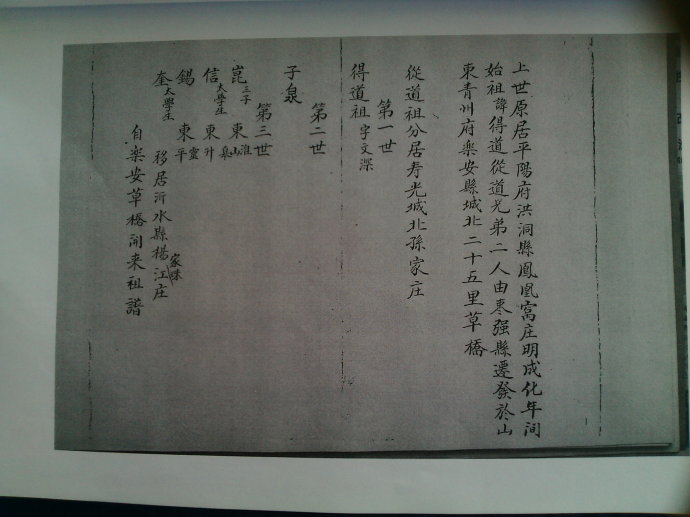 上世原居平陽府洪洞縣鳳凰窩庄明成化年间
始祖諱得道從道兄弟二人由枣强縣遷發於山
東青州府樂安縣城北二十五里草橋
從道祖分居寿光城北孫家庄
第一世
得道祖字文深
第二世
子泉
第三世
崑三子 東山淮
信太學生 東升
錫 東平靈
奎太學生 移居沂水縣楊江庄
自楽安草橋開来祖譜